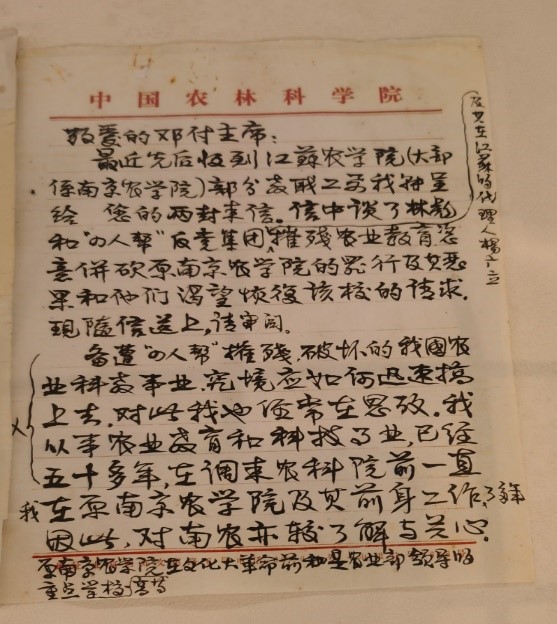 中国农林科学院
敬爱的邓付主席：
最近先后收到江苏农学院（大部
系南京农学院）部分教职工要我转呈
给 您的两封来信。信中谈了林彪
和“四人帮”反党集团摧残农业教育恣
意併砍原南京农学院的罪行及其恶
果和他们渴望恢復该校的请求。
现随信送上，请审阅。
备遭“四人帮”摧残、破坏的我國农
业科教事业，究境应如何迅速搞
上去，对此我也经常在思攷。我
从事农业教育和科技工业，已经
五十多年，在调来农科院前一直
在原南京农学院及其前身工作，
我
因此，对南农亦较了解与关心。
原南京农学院在文化大革命前和是农业部领导的
重点学校
及其在江苏的代理人杨广立